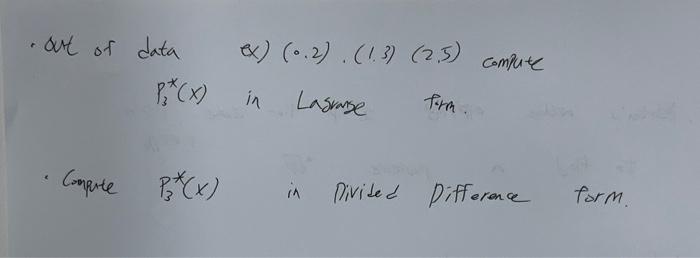 · out of data ex) (0.2) . (1.3) (2.5) compute
P₃*(x) in Lagrange form.
· Compute P₃*(x) in Divided Difference form.